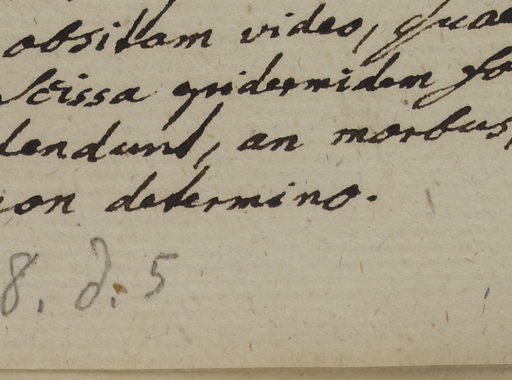 obsitam video, quae
scissa epidermidem
dendunt, an morbus,
non determino.
8. d. 5